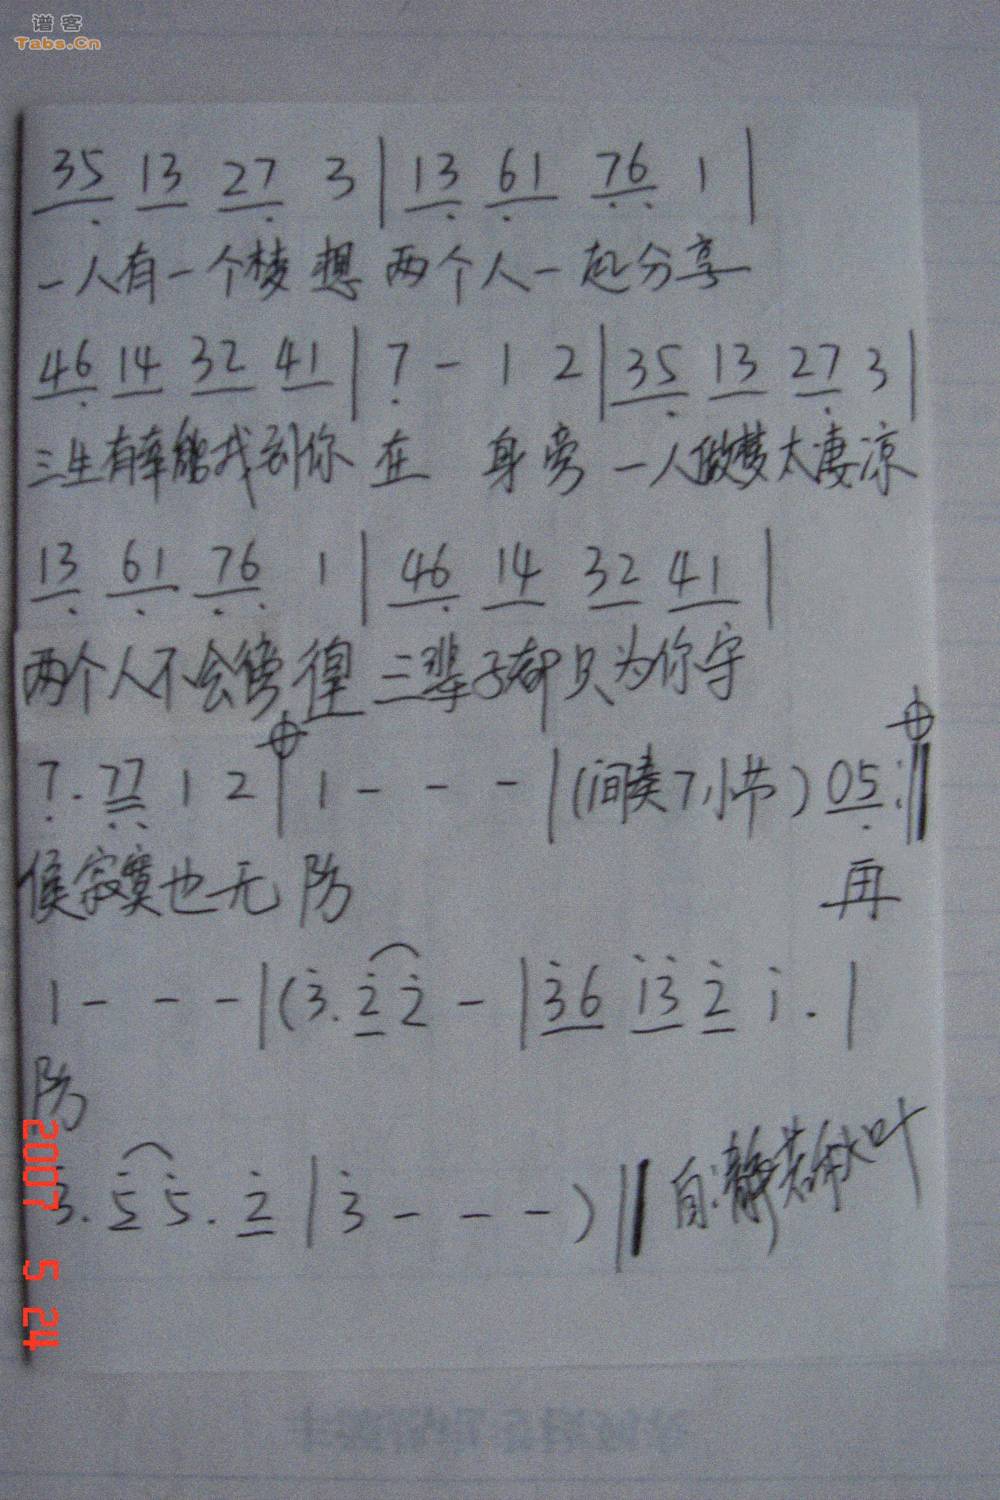 谱客
Tabs.Cn
35 13 27 3 | 13 61 76 1 |
一人有一个梦想 两个人一起分享
46 14 32 41 | 7 - 1 2 | 35 13 27 3 |
三生有幸能找到你 在 身旁 一人做梦太凄凉
13 61 76 1 | 46 14 32 41 |
两个人不会彷徨 三辈子都只为你守
7. 77 1 2 | 1 - - - | (间奏7小节) 05 :||
侯寂寞也无防 再
1 - - - | (3. 2 2 - | 36 13 2 1 . |
防
3. 5 5. 2 | 3 - - - ) || 自:静若秋叶
2007 5 24